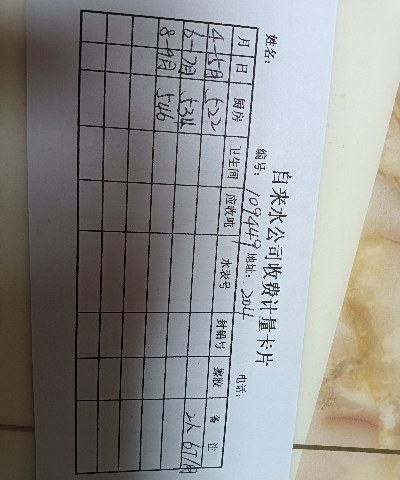 自来水公司收费计量卡片
姓名： 编号：109449 地址：204 电话：
月 日 厨房 卫生间 应收吨 水表号 封铅号 换改 备注
4-5月 522 2人 6T/月
6-7月 534
8-9月 546